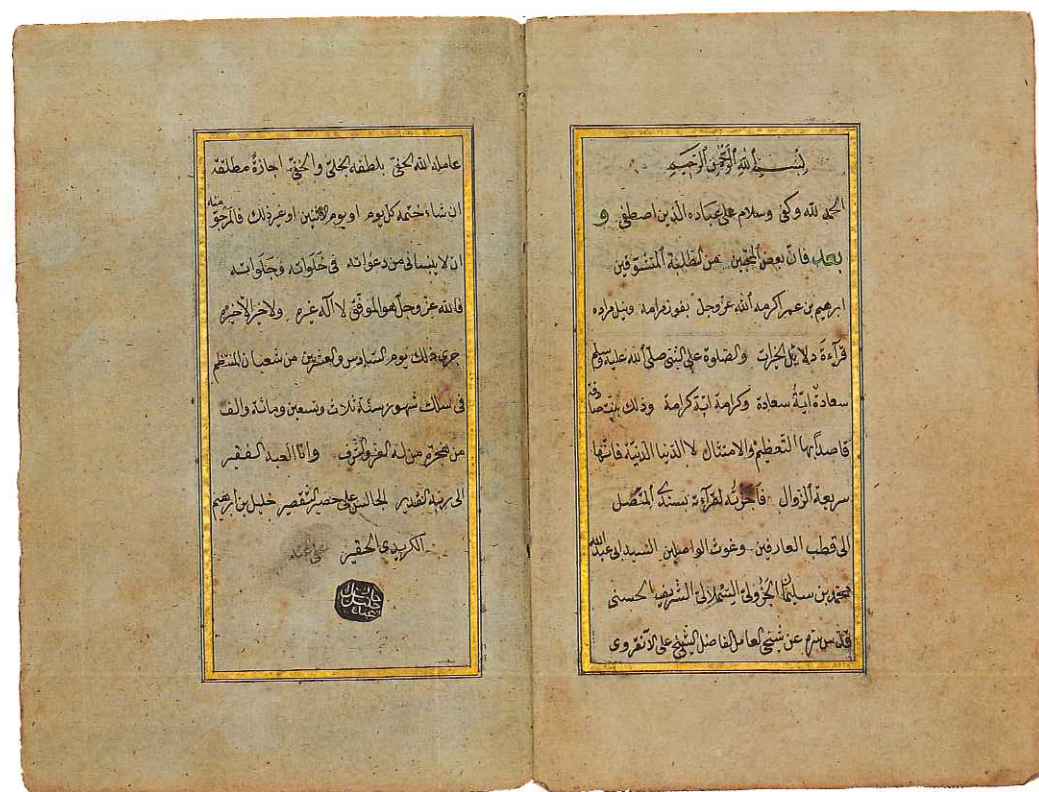 بسم الله الرحمن الرحيم
الحمد لله وكفى وسلام على عباده الذين اصطفى و
بعد فان بعض المحبين من الطلبة المتشوقين
ابرهيم بن عمر اكرمه الله عز وجل بفوز مرامه ونيل مراده
قرآءة دلائل الخيرات والصلوة على النبى صلى الله عليه وسلم
سعادة اية سعادة وكرامة اية كرامة وذلك
قاصدا بها التعظيم والامتثال لا الدنيا الدنية فانها
سريعة الزوال فاجزته لقرآءته بسندى المتصل
الى قطب العارفين وغوث الواصلين السيد ابى عبد الله
محمد بن سليمان الجزولى السملالى الشريف الحسنى
قدس سره عن شيخى العامل الفاضل الشيخ على الانقروى
عامله الله الحفى بلطفه الجلى والخفى اجازة مطلقة
ان شاء ختمه كل يوم او يوم الاثنين او غير ذلك فالمرجو منه
ان لا ينسانى من دعواته فى خلواته وجلواته
فالله عز وجل هو الموفق لا اله غيره ولا خير الا خيره
جرى ذلك يوم السادس والعشرين من شعبان المنتظم
فى سلك شهور سنة ثلاث وتسعين ومائة والف
من هجرة من له العز والشرف وانا العبد الفقير
الى ربه القدير الجالس على حصر التقصير خليل بن ابرهيم
الكريدى الحقير